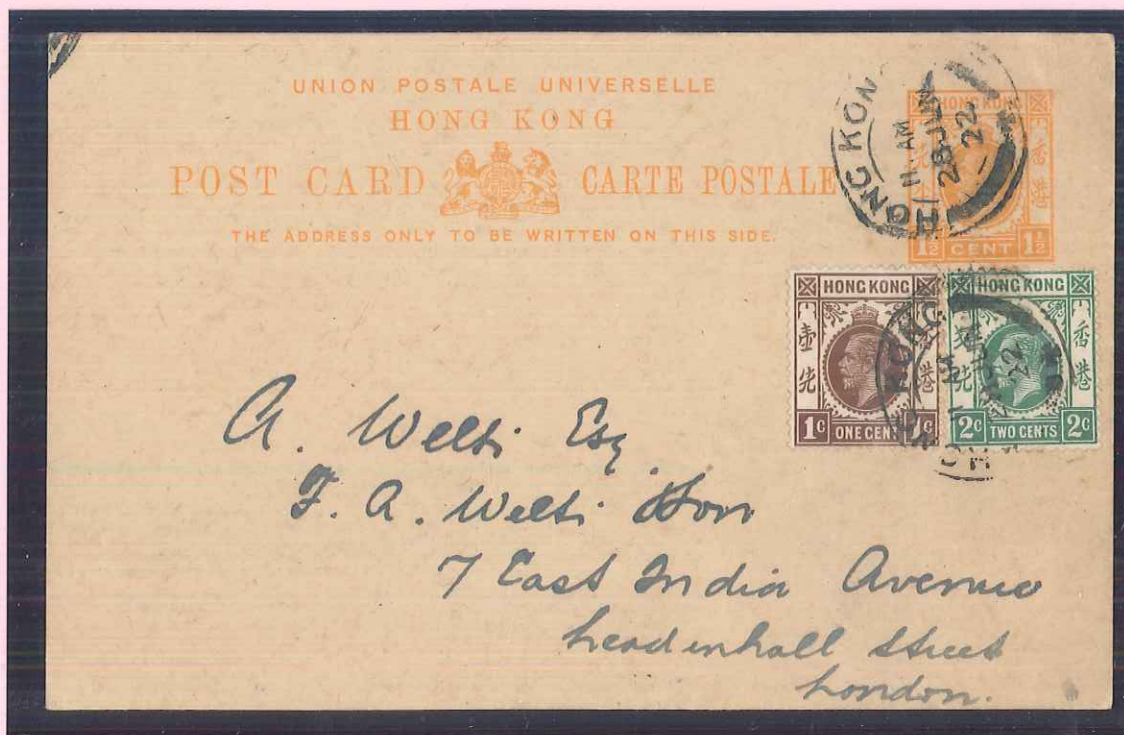 UNION POSTALE UNIVERSELLE
HONG KONG
POST CARD CARTE POSTALE
THE ADDRESS ONLY TO BE WRITTEN ON THIS SIDE.
HONG KON
11 AM
28 JUN
22
HONG KONG
香港
1½ CENT 1½
HONG KONG
壹先
1c ONE CENT 1c
HONG KONG
香港
2c TWO CENTS 2c
HONG
22
A. Welti Esq
F. A. Welti Son
7 East India Avenue
Leadenhall Street
London.